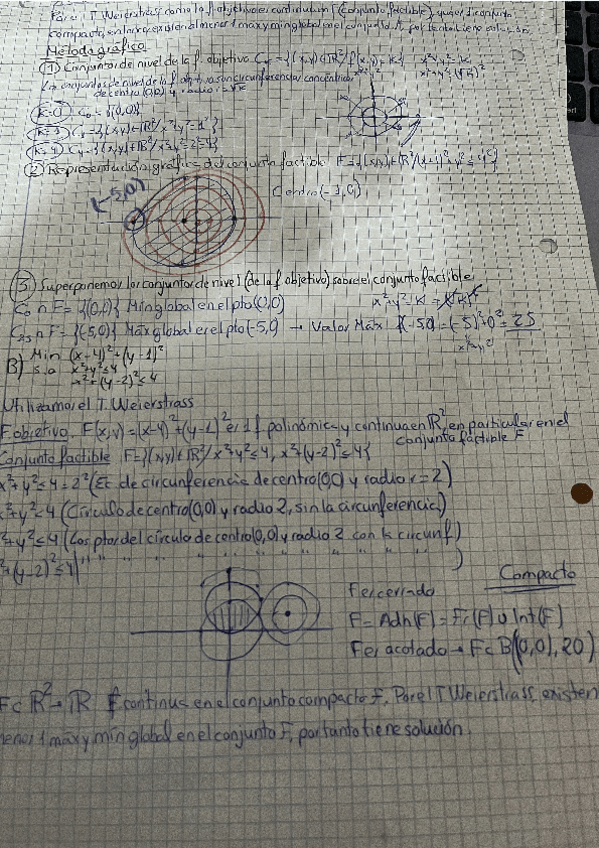 Por el T. Weierstrass como la f. objetivo es continua en F (Conjunto factible), y que F es conjunto
compacto, entonces existen al menos 1 max y min global en el conjunto F, por tanto tiene solución.
Método gráfico
① Conjuntos de nivel de la f. objetivo Cκ={(x,y)∈ℝ²/f(x,y)=K} x²+y²=K
x²+y²=(√K)²
Los conjuntos de nivel de la f. objetivo son circunferencias concéntricas
de centro (0,0) y radio r=√K
K=0 C₀={(0,0)}
K=1 C₁={(x,y)∈ℝ²/x²+y²=1²}
K=4 C₄={(x,y)∈ℝ²/x²+y²=2²=4}
② Representación gráfica del conjunto factible F={(x,y)∈ℝ²/(x+1)²+y²≤4²}
(-5,0) Centro(-1,0)
③ Superponemos los conjuntos de nivel (de la f. objetivo) sobre el conjunto factible
C₀∩F={(0,0)} Min global en el pto(0,0) x²+y²=K
C₂₅∩F={(-5,0)} Máx global es el pto(-5,0) → Valor Máx f(-5,0)=(-5)²+0²=25
x²+y²
B) Min (x-4)²+(y-1)²
s.a x²+y²≤4
x²+(y-2)²≤4
Utilizamos el T. Weierstrass
F. objetivo F(x,y)=(x-4)²+(y-1)² es 1 f. polinómica y continua en ℝ², en particular en el
conjunto factible F
Conjunto factible F={(x,y)∈ℝ²/x²+y²≤4, x²+(y-2)²≤4}
x²+y²=4=2² (Ec de circunferencia de centro(0,0) y radio r=2)
x²+y²<4 (Círculo de centro(0,0) y radio 2, sin la circunferencia)
x²+y²≤4 (Los ptos del círculo de centro(0,0) y radio 2 con la circunf.)
x²+(y-2)²≤4 (" " " " " " " " " " )
Compacto
F es cerrado
F=Adh(F)=Fr(F)∪Int(F)
F es acotado → F⊂B((0,0),20)
F⊂ℝ²→ℝ f continua en el conjunto compacto F. Por el T Weierstrass, existen
al menos 1 máx y mín global en el conjunto F, por tanto tiene solución.